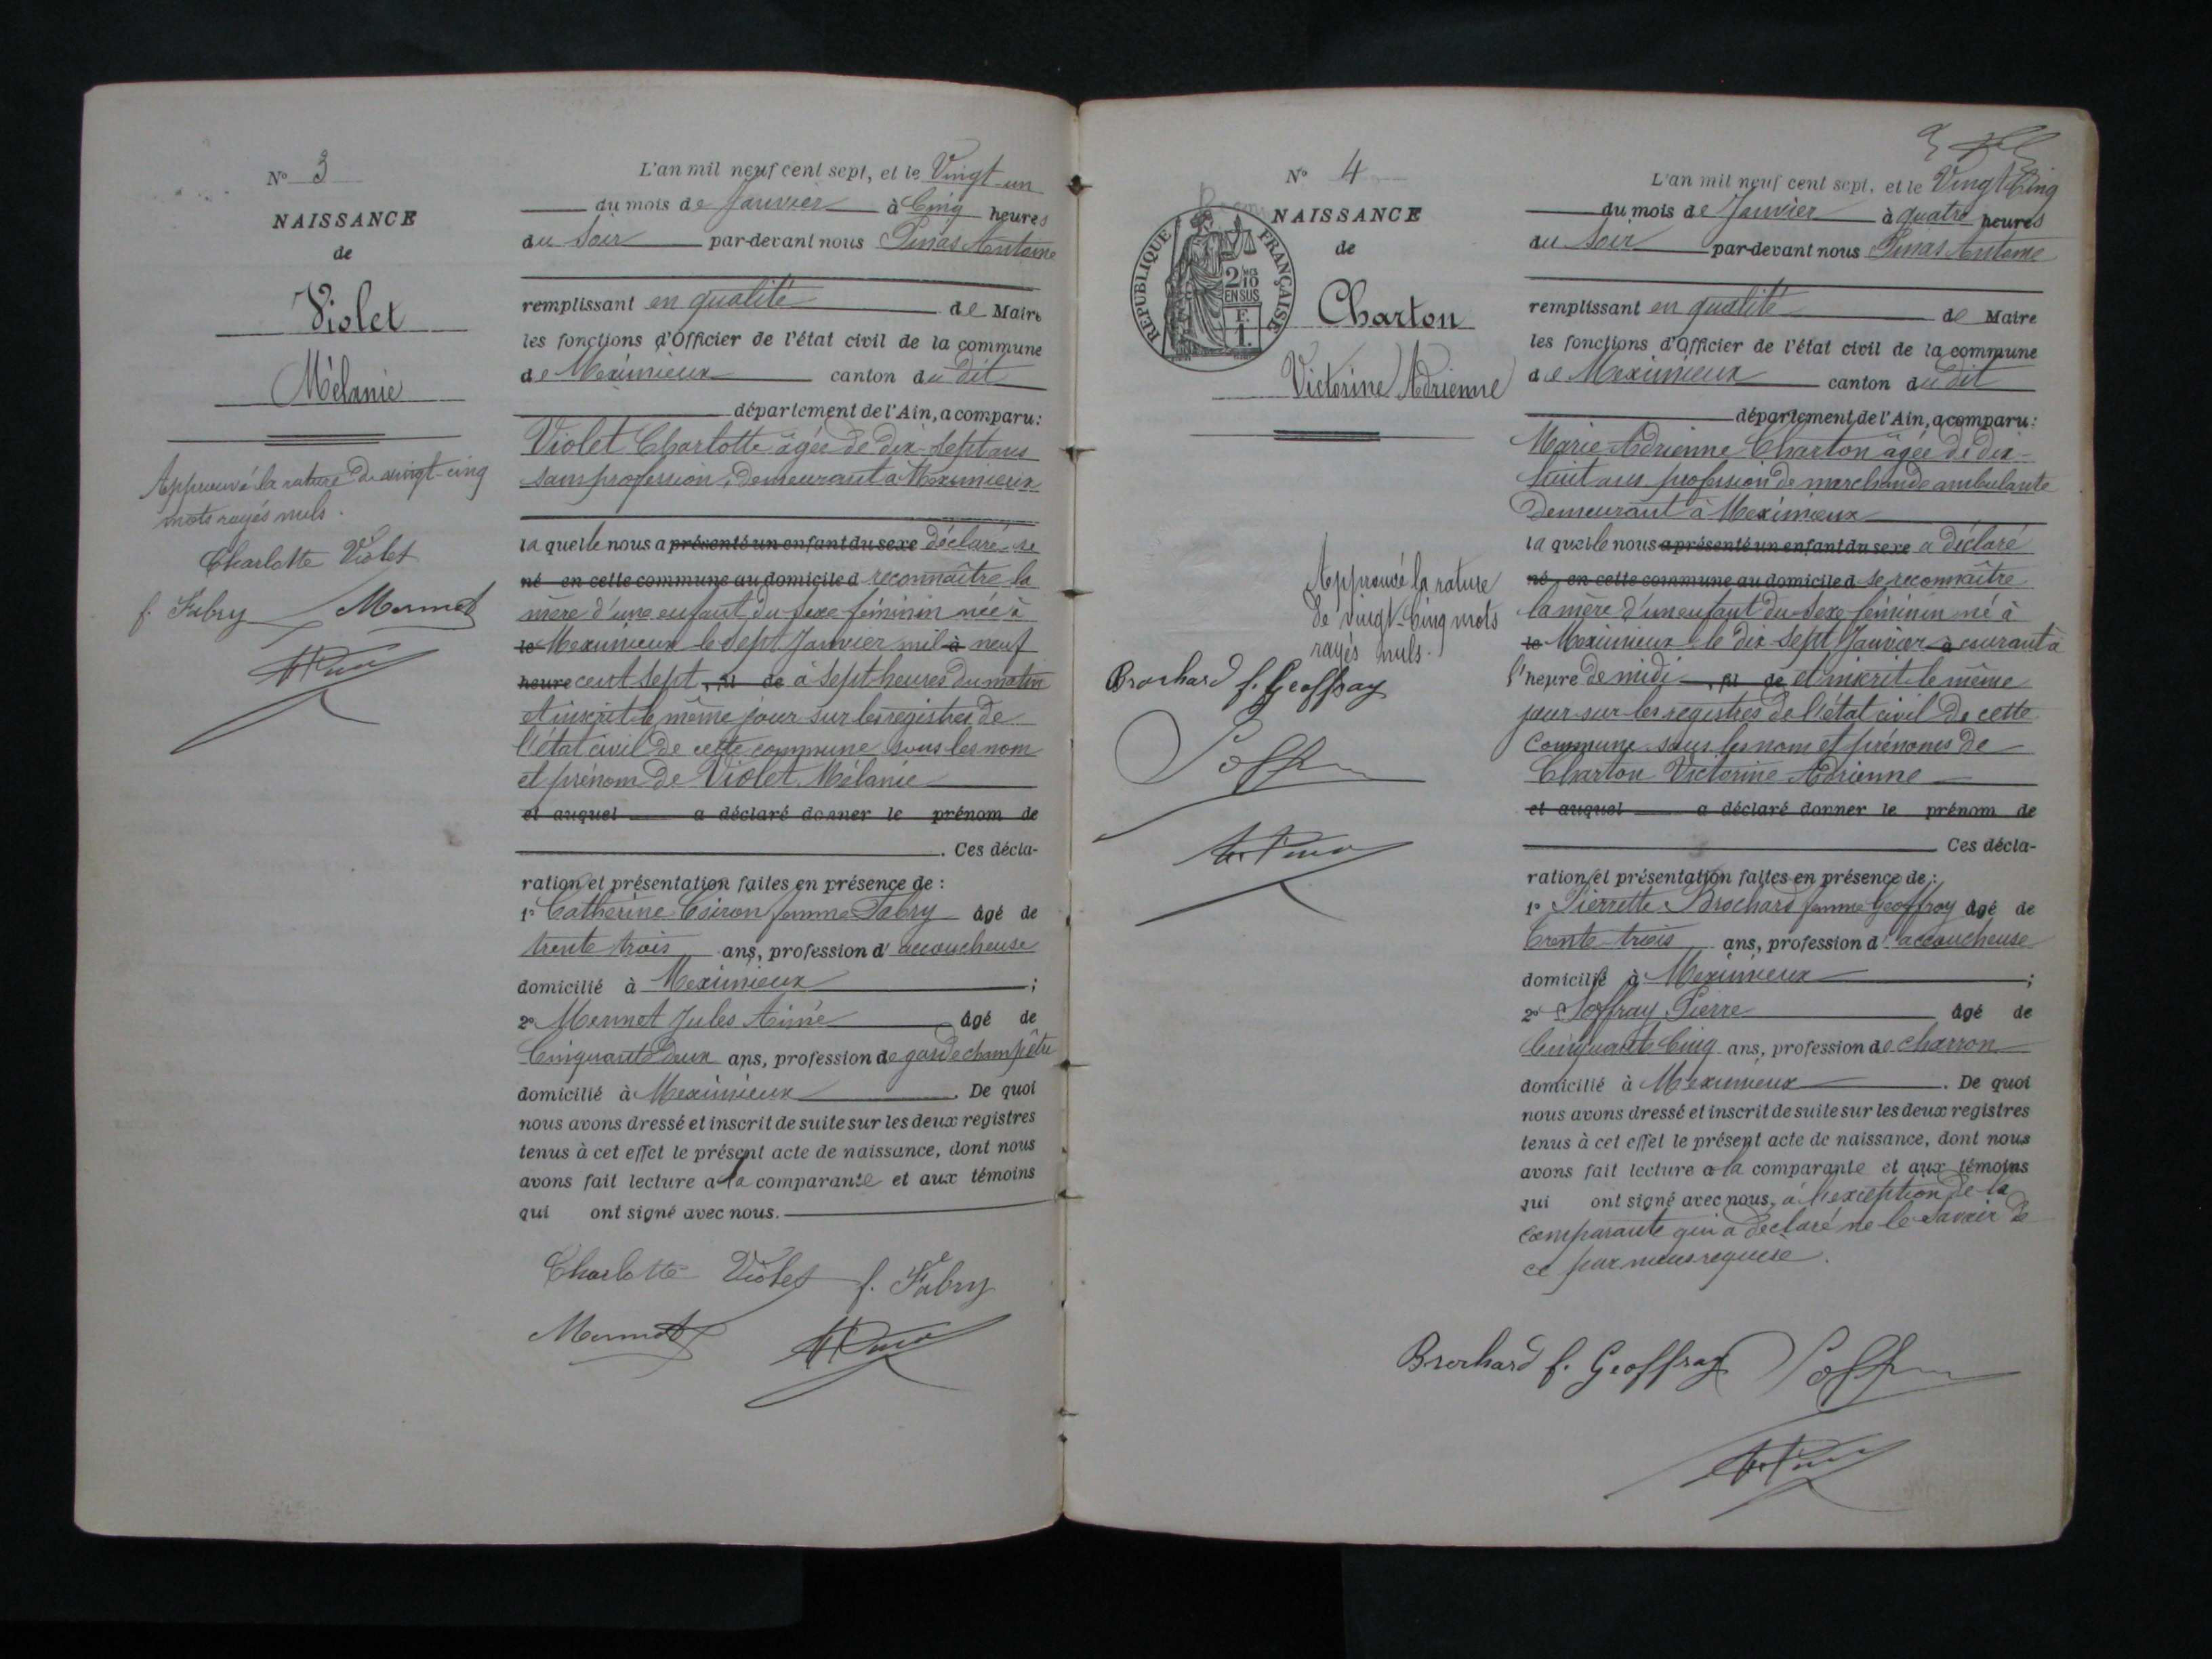 N° 3
NAISSANCE
de
Violet
Mélanie
Approuvé la rature de vingt-cinq
mots rayés nuls.
Charlotte Violet
f. Fabry Mermet
L'an mil neuf cent sept, et le Vingt-un
du mois de Janvier à Cinq heures
du Soir par-devant nous Pinas Antoine
remplissant en qualité de Maire
les fonctions d'Officier de l'état civil de la commune
de Meximieux canton du dit
département de l'Ain, a comparu:
Violet Charlotte âgée de dix-sept ans
sans profession, demeurant à Meximieux
la quelle nous a présenté un enfant du sexe déclaré se
né en cette commune au domicile d reconnaître la
mère d'une enfant du sexe féminin née à
le Meximieux le sept Janvier mil à neuf
heure cent sept, fil de à sept heures du matin
et inscrit le même jour sur les registres de
l'état civil de cette commune sous les nom
et prénom de Violet Mélanie
et auquel a déclaré donner le prénom de
. Ces décla-
ration et présentation faites en présence de :
1° Catherine Coiron femme Fabry âgé de
trente trois ans, profession d' accoucheuse
domicilié à Meximieux ;
2° Mermet Jules Aimé âgé de
Cinquante Deux ans, profession de garde champêtre
domicilié à Meximieux. De quoi
nous avons dressé et inscrit de suite sur les deux registres
tenus à cet effet le présent acte de naissance, dont nous
avons fait lecture a la comparante et aux témoins
qui ont signé avec nous.
Charlotte Violet f. Fabry
Mermet
N° 4
NAISSANCE
de
REPUBLIQUE FRANÇAISE
2/10
EN SUS
F.
1.
Charton
Victorine Adrienne
Approuvé la rature
de vingt-Cinq mots
rayés nuls.
Brochard f. Geoffray
L'an mil neuf cent sept, et le Vingt Cinq
du mois de Janvier à quatre heures
du Soir par-devant nous Pinas Antoine
remplissant en qualité de Maire
les fonctions d'Officier de l'état civil de la commune
de Meximieux canton du dit
département de l'Ain, a comparu:
Marie Adrienne Charton âgée de dix-
huit ans profession de marchande ambulante
Demeurant à Meximieux
la quelle nous a présenté un enfant du sexe a déclaré
né, en cette commune au domicile d se reconnaître
la mère d'un enfant du sexe féminin né à
le Meximieux le dix-sept Janvier à courant à
l'heure de midi, fil de et inscrit le même
jour sur les registres de l'état civil de cette
Commune sous les nom et prénoms de
Charton Victorine Adrienne
et auquel a déclaré donner le prénom de
Ces décla-
ration et présentation faites en présence de :
1° Pierrette Brochard femme Geoffray âgé de
trente-trois ans, profession d' accoucheuse
domicilié à Meximieux ;
2° Soffray Pierre âgé de
Cinquante Cinq ans, profession de charron
domicilié à Meximieux. De quoi
nous avons dressé et inscrit de suite sur les deux registres
tenus à cet effet le présent acte de naissance, dont nous
avons fait lecture a la comparante et aux témoins
qui ont signé avec nous, à l'exception de la
comparante qui a déclaré ne le savoir de
ce par nous requise.
Brochard f. Geoffray